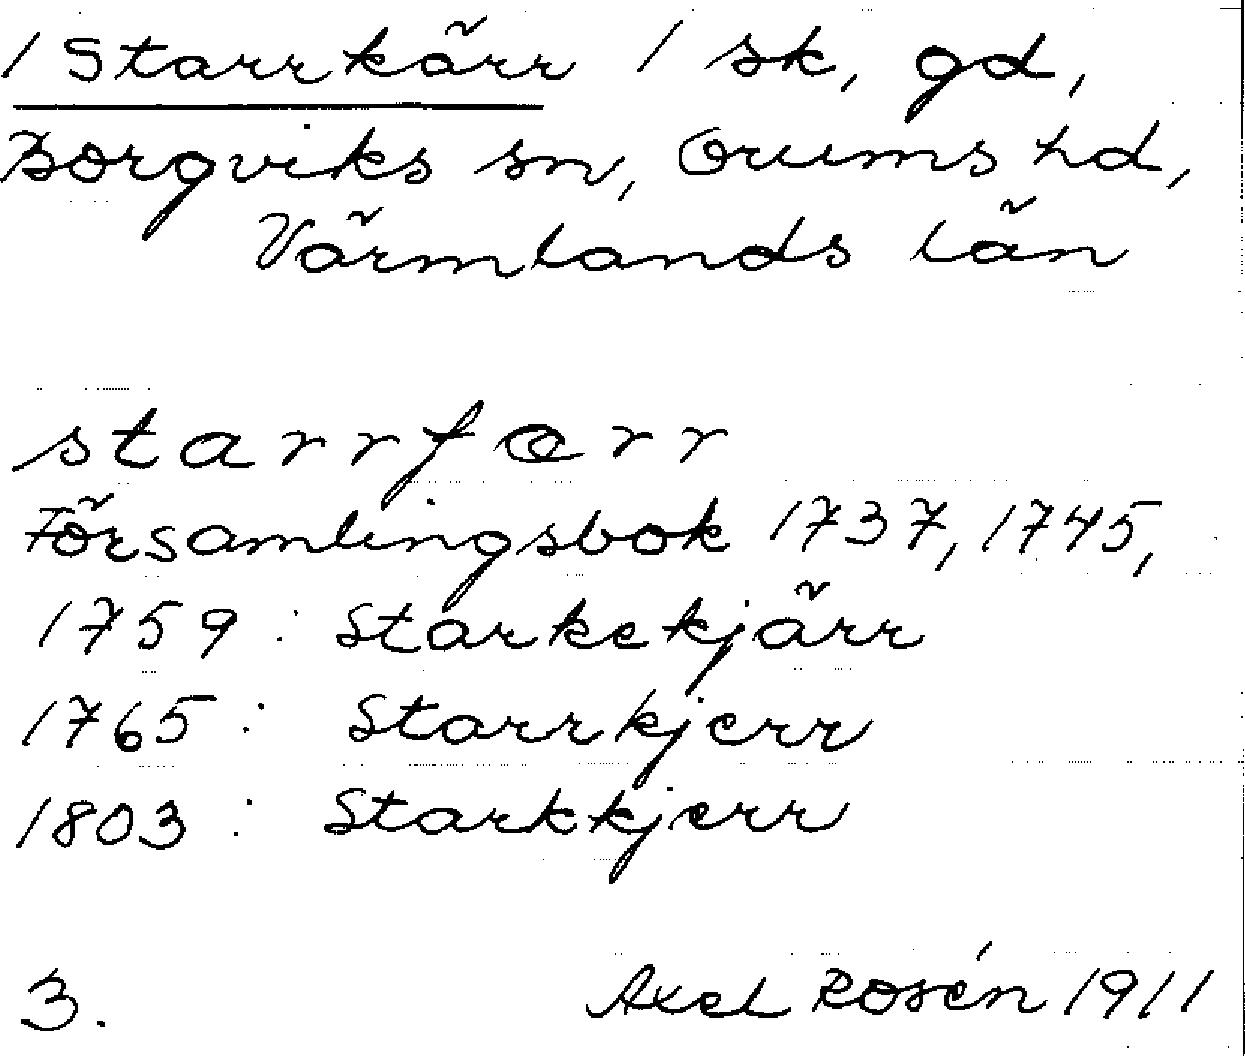 / Starrkärr / sk, gd,
Borgviks sn, Grums hd,
Värmlands län
starrfœrr
Församlingsbok 1737, 1745,
1759 : Starkekjärr
1765 : Starrkjerr
1803 : Starkkjerr
3. Axel Rosén 1911